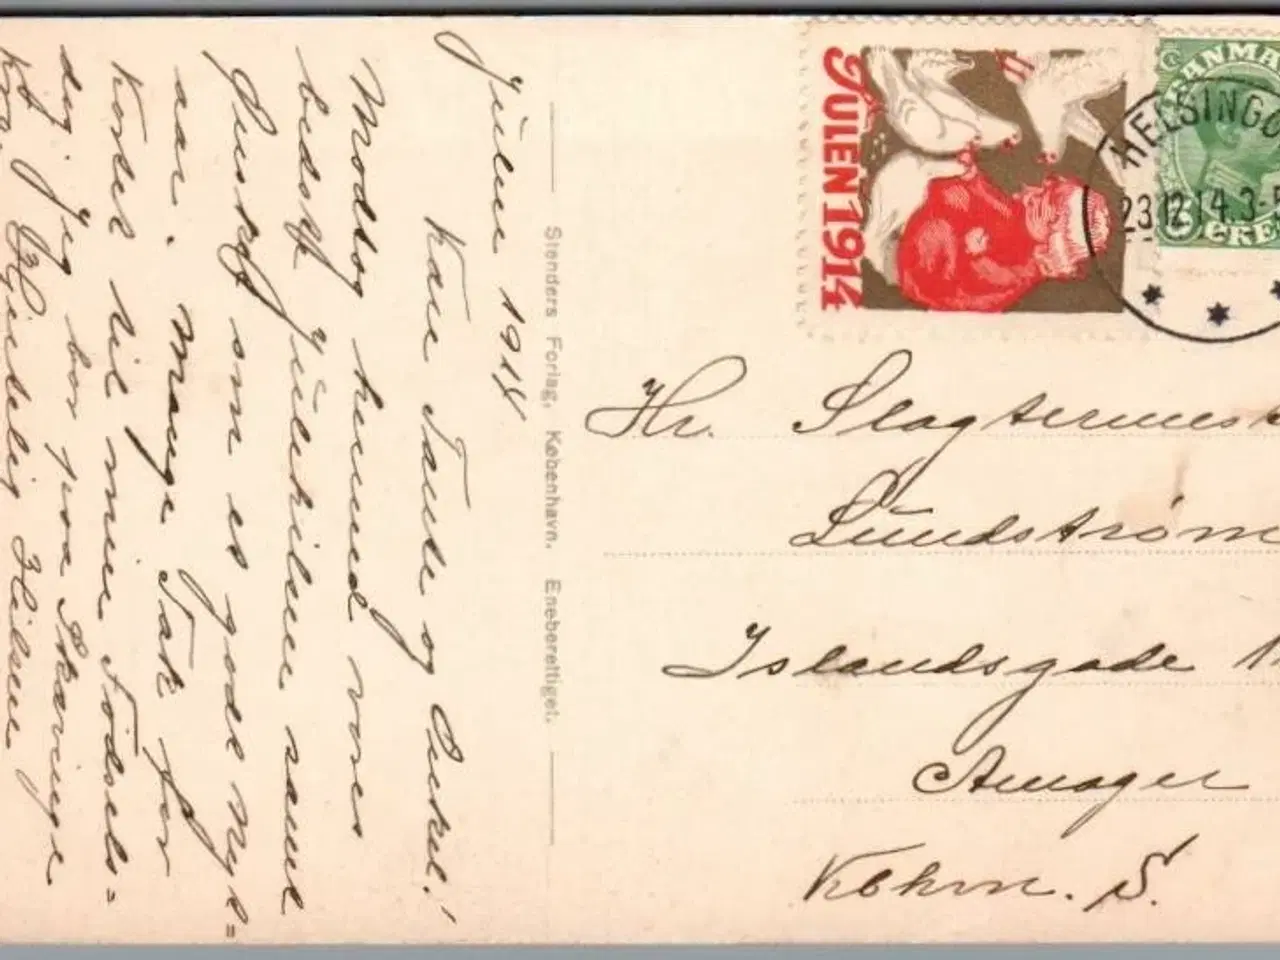 Julen 1914
Kære Tante og Onkel!
Modtag herved vores
bedste Julehilsen samt
Ønsket om et godt Nyt=
aar. Mange Tak for
Kortet til min Fødsels=
dag. Jeg bor paa
Hjertelig Hilsen
Stenders Forlag, København. Eneberettiget.
JULEN 1914
DANMA
ØRE
HELSINGØ
23.12.14.3-5
Hr. Slagtermest
Lundstrøm
Islandsgade 1
Amager
Kbhvn. S.